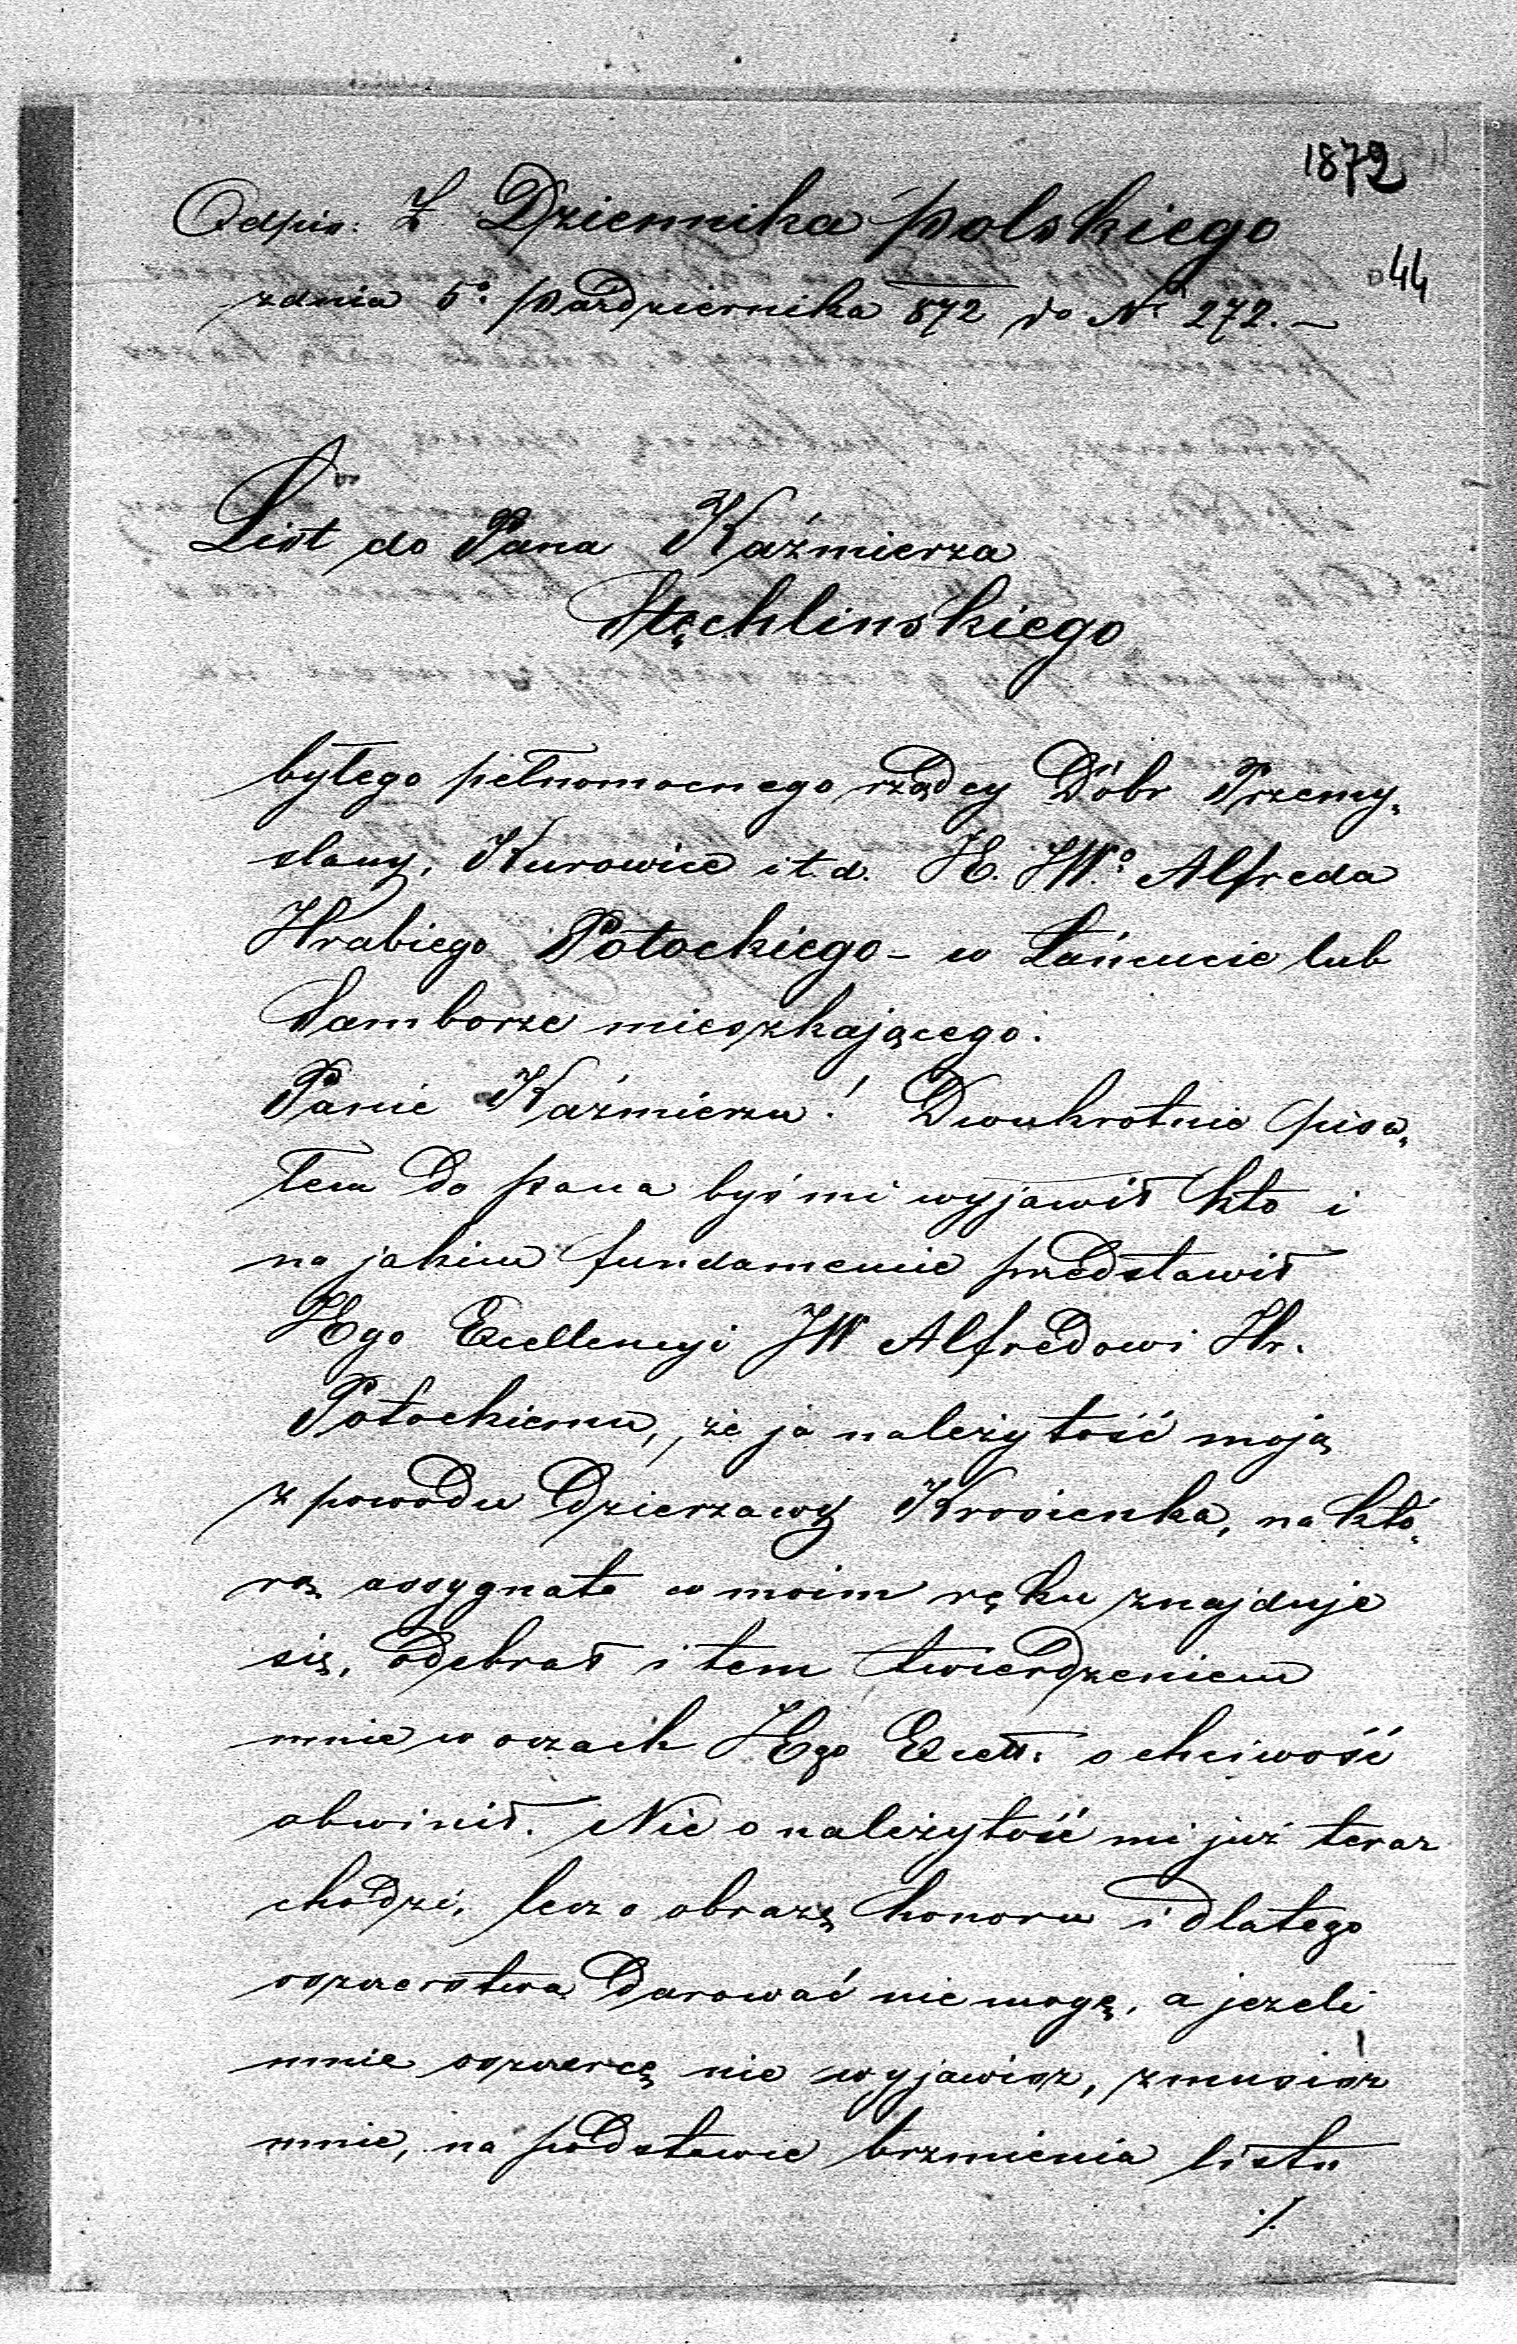 1872
Odpis. Z Dziennika polskiego
44
zdnia 5º. października 872 do Nr 272. –
List do Pana Kaźmierza
Stęchlinskiego
byłego pełnomocnego rządcy Dóbr Przemy„
slany, Kurowice i t. d. JE. JWº. Alfreda
Hrabiego Potockiego – w Łańcucie lub
Samborze mieszkającego.
Panie Kaźmierzu! Dwukrotnie pisa„
łem do pana byś mi wyjawił kto i
na jakim fundamencie przedstawił
JEgo Excellencyi JW Alfredowi Hr.
Potockiemu, że ja należytość moją
z powodu dzierzawy Krosienka, na któ„
rą assygnata w moim ręku znajduje
się, odebrał i tem twierdzeniem
mnie w oczach JEgo Excell. o chciwość
obwinił. Nie o należytość mi już teraz
chodzi, lecz o obrazę honoru i dlatego
oszczerstwa darować nie mogę, a jezeli
mnie oszczercę nie wyjawisz, zmusisz
mnie, na podstawie brzmienia listu
./.